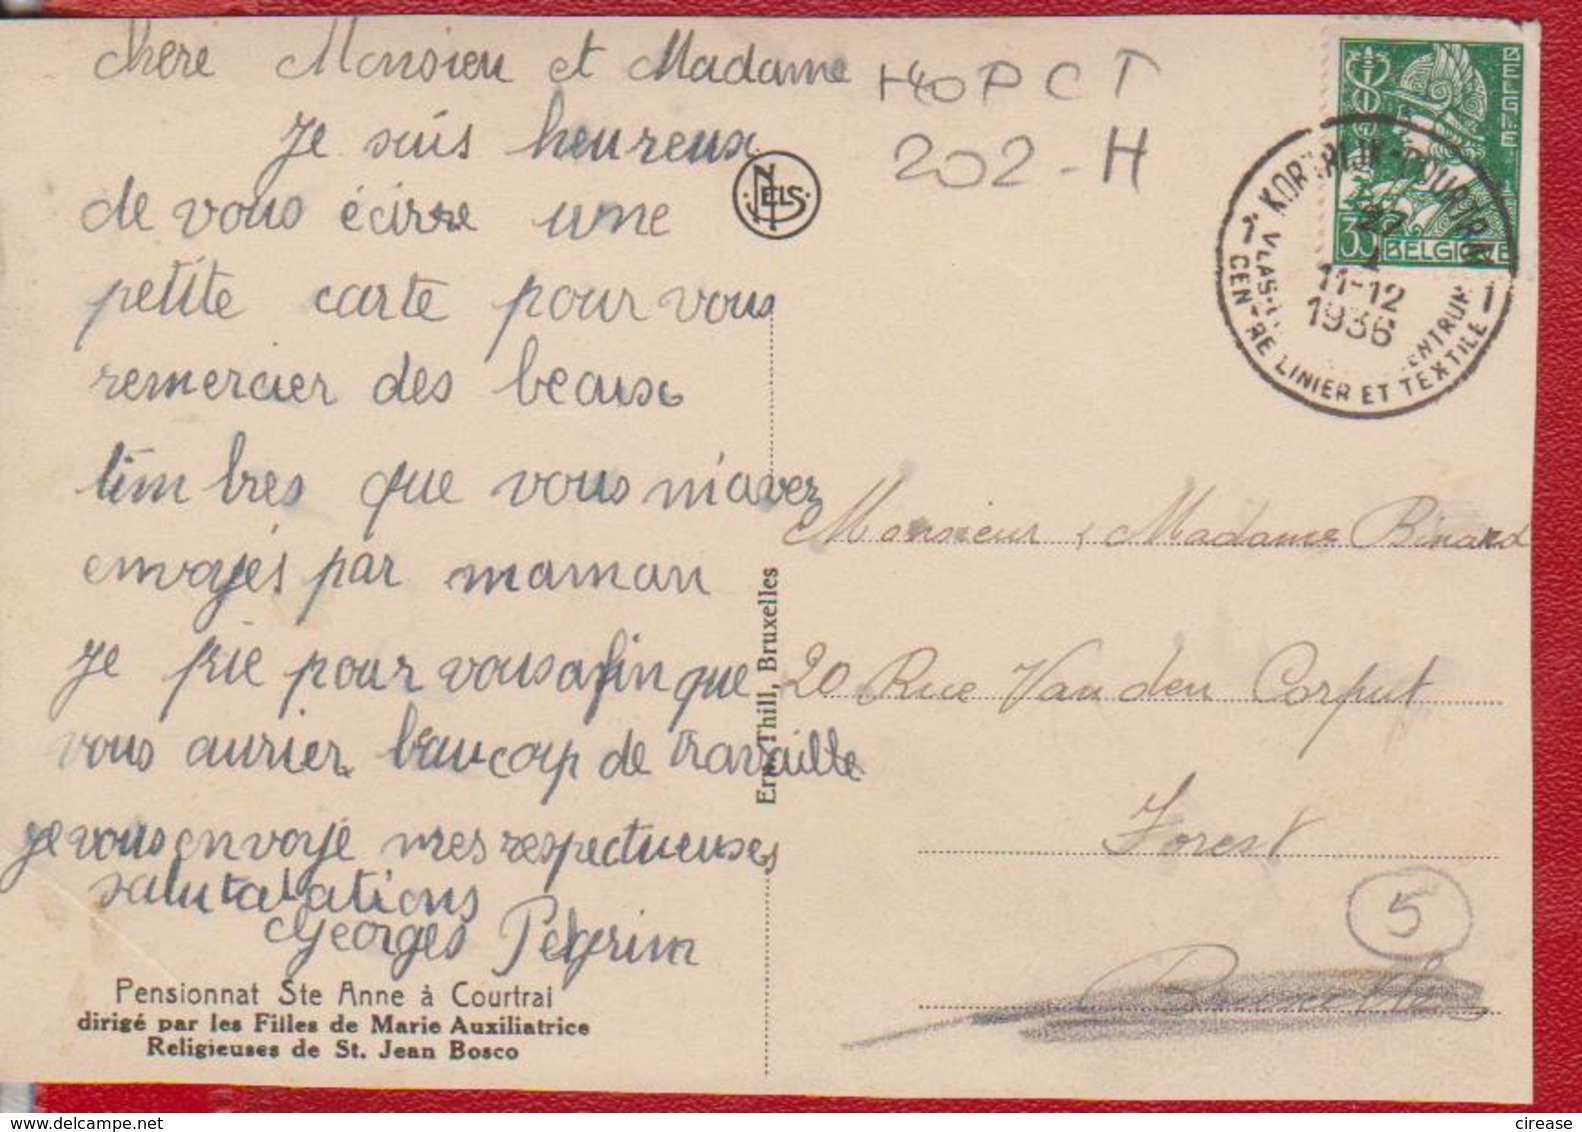 chère Monsieu et Madame
je suis heureux
de vous écirre une
petite carte pour vous
remercier des beaux
timbres que vous m'avez
envoyés par maman
je prie pour vous afin que
vous aurier beaucoup de travaille
je vous envoye mes respectueuses
salutatations
Georges Pelgrim
Pensionnat Ste Anne à Courtrai
dirigé par les Filles de Marie Auxiliatrice
Religieuses de St. Jean Bosco
NELS
Ern. Thill, Bruxelles
140 P C T
202-H
BELGIË
35 BELGIQUE
1 KORTRIJK-COURTRAI 1
27
11-12
1936
CENTRE LINIER ET TEXTILE
Monsieur & Madame Binard
20 Rue Van den Corput
Forest
5
Bruxelles
delcampe.net
cirease